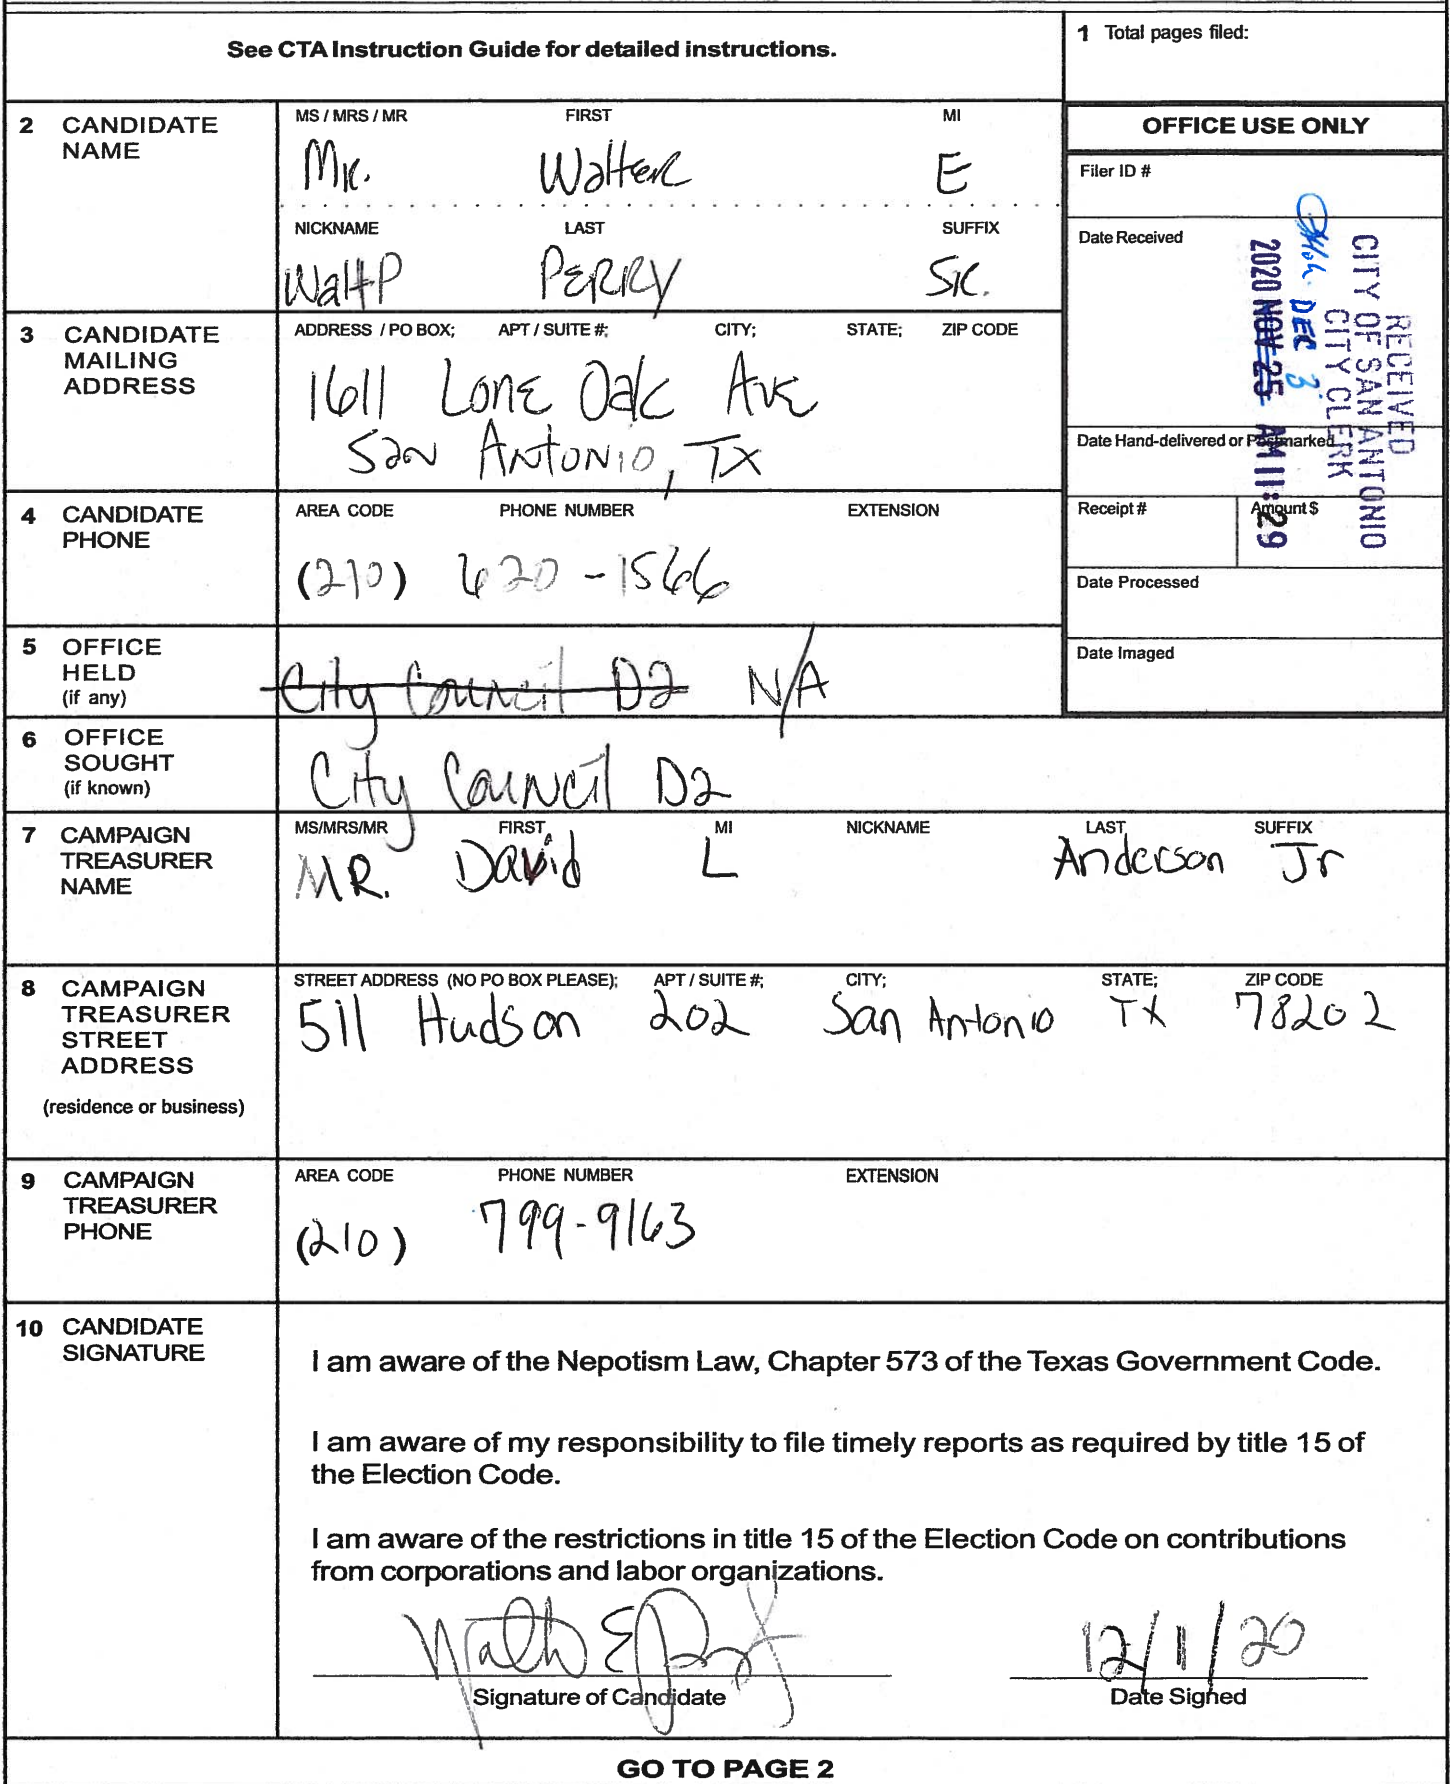 See CTA Instruction Guide for detailed instructions.
1 Total pages filed:
2 CANDIDATE NAME
MS / MRS / MR FIRST MI
Mr. Walter E
NICKNAME LAST SUFFIX
Walt P PERRY SR.
OFFICE USE ONLY
Filer ID #
Date Received
RECEIVED
CITY OF SAN ANTONIO
CITY CLERK
DEC 3
2020 NOV 25 AM 11:29
Date Hand-delivered or Postmarked
Receipt # Amount $
Date Processed
Date Imaged
3 CANDIDATE MAILING ADDRESS
ADDRESS / PO BOX; APT / SUITE #; CITY; STATE; ZIP CODE
1611 Lone Oak Ave
San Antonio, TX
4 CANDIDATE PHONE
AREA CODE PHONE NUMBER EXTENSION
(210) 620-1566
5 OFFICE HELD (if any)
City Council D2 N/A
6 OFFICE SOUGHT (if known)
City Council D2
7 CAMPAIGN TREASURER NAME
MS/MRS/MR FIRST MI NICKNAME LAST SUFFIX
MR. David L Anderson Jr
8 CAMPAIGN TREASURER STREET ADDRESS
(residence or business)
STREET ADDRESS (NO PO BOX PLEASE); APT / SUITE #; CITY; STATE; ZIP CODE
511 Hudson 202 San Antonio TX 78202
9 CAMPAIGN TREASURER PHONE
AREA CODE PHONE NUMBER EXTENSION
(210) 799-9163
10 CANDIDATE SIGNATURE
I am aware of the Nepotism Law, Chapter 573 of the Texas Government Code.
I am aware of my responsibility to file timely reports as required by title 15 of
the Election Code.
I am aware of the restrictions in title 15 of the Election Code on contributions
from corporations and labor organizations.
12/1/20
Signature of Candidate Date Signed
GO TO PAGE 2